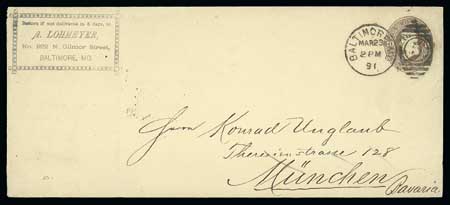 Return if not delivered in 5 days, to
A. LOHMEYER,
N. Gilmor Street,
BALTIMORE, MD.
BALTIMORE
MAR 23
2 PM
91
Herrn Konrad Unglaub
Theresienstrasse 128
München
Bavaria.